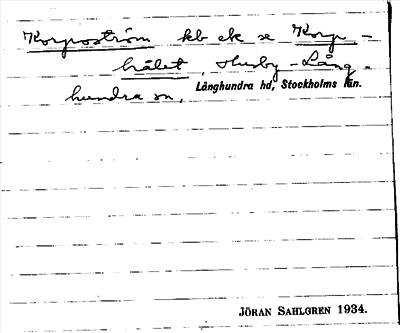 Korpoström kb ek se Korp-
hålet, Husby-Lång-
hundra sn, Långhundra hd, Stockholms län.
JÖRAN SAHLGREN 1934.